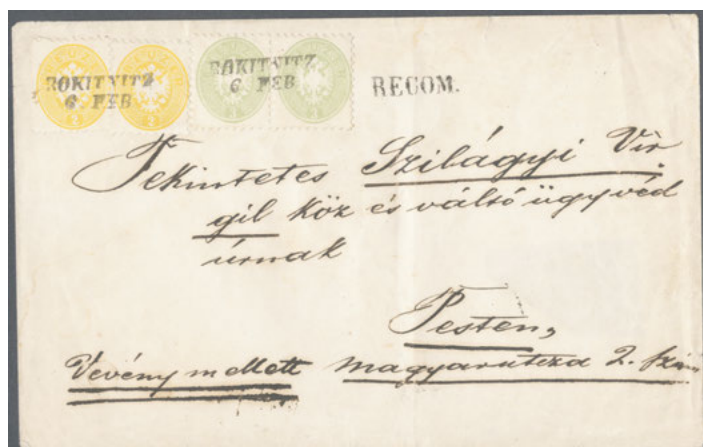 ROKITNITZ
6 FEB
RAKITNITZ
6 FEB
RECOM.
Tekintetes Szilágyi Vir
gil köz és váltó ügyvéd
úrnak
Pesten,
Vevény mellett magyar utcza 2. szám